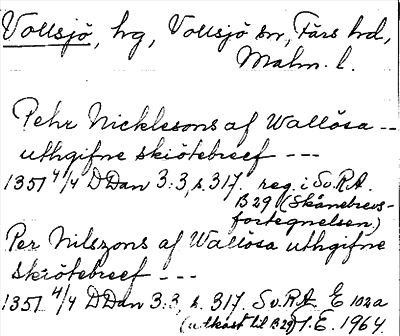 Vollsjö, hg, Vollsjö sn, Färs hd,
Malm. l.
Pehr Nicklesons af Wallösa --
uthgifne skiötebreef ---
1351 4/4 DDan 3:3, s. 317. reg. i Sv.R.A.
B 29 (Skånebrevs-
fortegnelsen)
Per Nilszons af Wallösa uthgifne
skiötebreef ---
1351 4/4 DDan 3:3, s. 317. Sv.R.A. E 102a
(utkast til B29) I.E. 1964